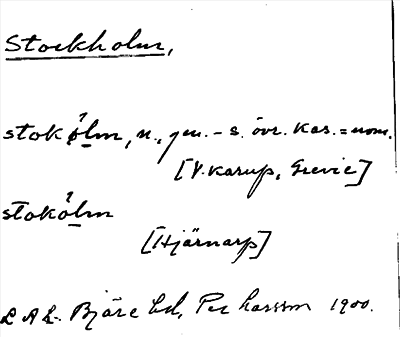 Stockholm,
stokölm, n., gen. -s. övr. kas. = nom.
[V. Karup, Grevie]
stokölm
[Hjärnarp]
L A L. Bjäre hd, Per Larsson 1900.